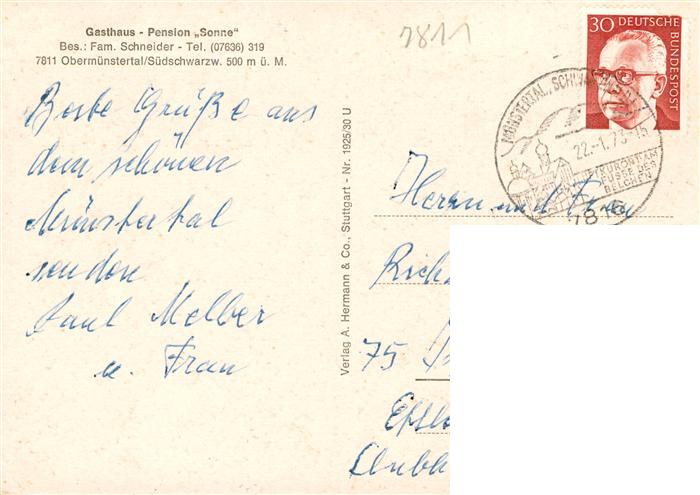 Gasthaus - Pension „Sonne"
Bes.: Fam. Schneider - Tel. (07636) 319
7811 Obermünstertal/Südschwarzw. 500 m ü. M.
7811
Beste Grüße aus
dem schönen
Münstertal
senden
Paul Melber
u. Frau
Verlag A. Hermann & Co., Stuttgart - Nr. 1925/30 U
30 DEUTSCHE
BUNDESPOST
MÜNSTERTAL, SCHWARZWALD
22.-1.73-15
LUFTKURORT AM
FUSSE DES
BELCHEN
7816
Herrn und Frau
Rich
75